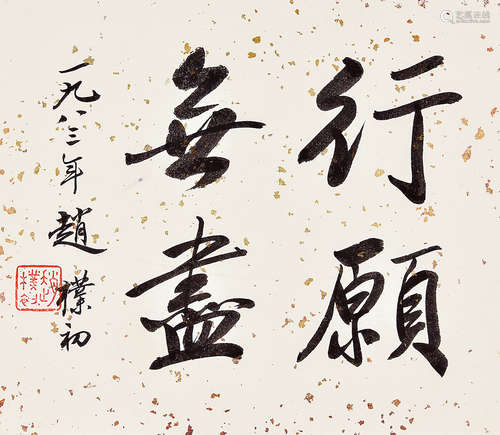 行願
無盡
一九八三年 趙樸初